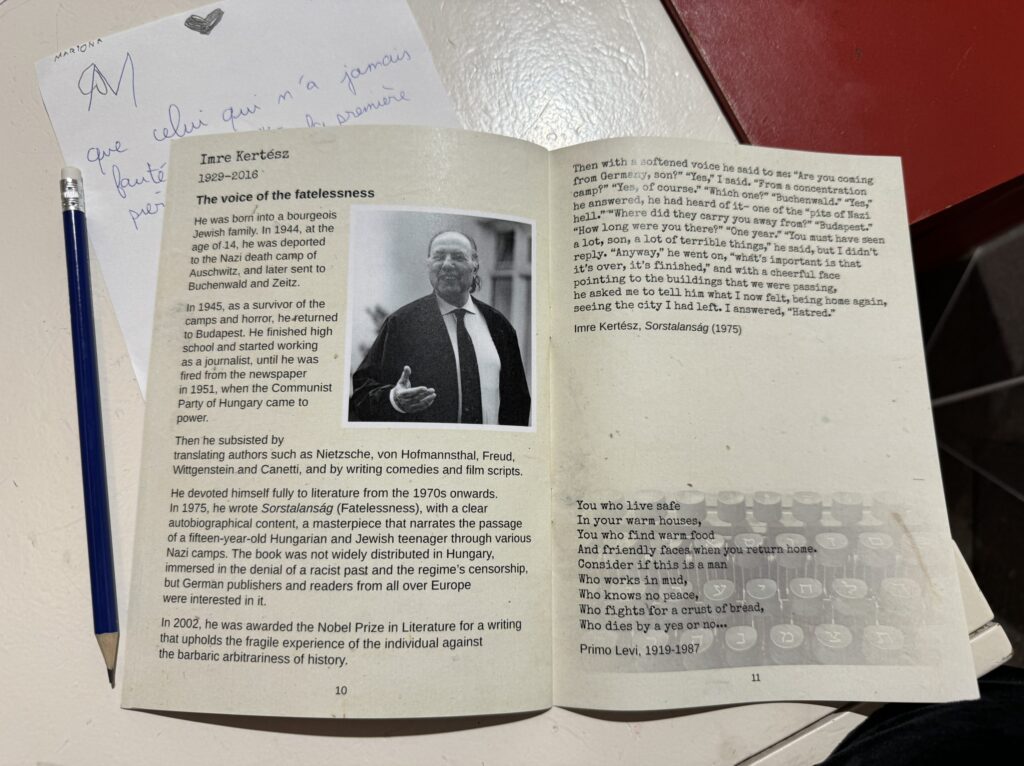 MARIONA
que celui qui n'a jamais
fauté
la première
Imre Kertész
1929-2016
The voice of the fatelessness
He was born into a bourgeois
Jewish family. In 1944, at the
age of 14, he was deported
to the Nazi death camp of
Auschwitz, and later sent to
Buchenwald and Zeitz.
In 1945, as a survivor of the
camps and horror, he returned
to Budapest. He finished high
school and started working
as a journalist, until he was
fired from the newspaper
in 1951, when the Communist
Party of Hungary came to
power.
Then he subsisted by
translating authors such as Nietzsche, von Hofmannsthal, Freud,
Wittgenstein and Canetti, and by writing comedies and film scripts.
He devoted himself fully to literature from the 1970s onwards.
In 1975, he wrote Sorstalanság (Fatelessness), with a clear
autobiographical content, a masterpiece that narrates the passage
of a fifteen-year-old Hungarian and Jewish teenager through various
Nazi camps. The book was not widely distributed in Hungary,
immersed in the denial of a racist past and the regime's censorship,
but German publishers and readers from all over Europe
were interested in it.
In 2002, he was awarded the Nobel Prize in Literature for a writing
that upholds the fragile experience of the individual against
the barbaric arbitrariness of history.
10
Then with a softened voice he said to me: "Are you coming
from Germany, son?" "Yes," I said. "From a concentration
camp?" "Yes, of course." "Which one?" "Buchenwald." "Yes,"
he answered, he had heard of it- one of the "pits of Nazi
hell." "Where did they carry you away from?" "Budapest."
"How long were you there?" "One year." "You must have seen
a lot, son, a lot of terrible things," he said, but I didn't
reply. "Anyway," he went on, "what's important is that
it's over, it's finished," and with a cheerful face
pointing to the buildings that we were passing,
he asked me to tell him what I now felt, being home again,
seeing the city I had left. I answered, "Hatred."
Imre Kertész, Sorstalanság (1975)
You who live safe
In your warm houses,
You who find warm food
And friendly faces when you return home.
Consider if this is a man
Who works in mud,
Who knows no peace,
Who fights for a crust of bread,
Who dies by a yes or no...
Primo Levi, 1919-1987
11